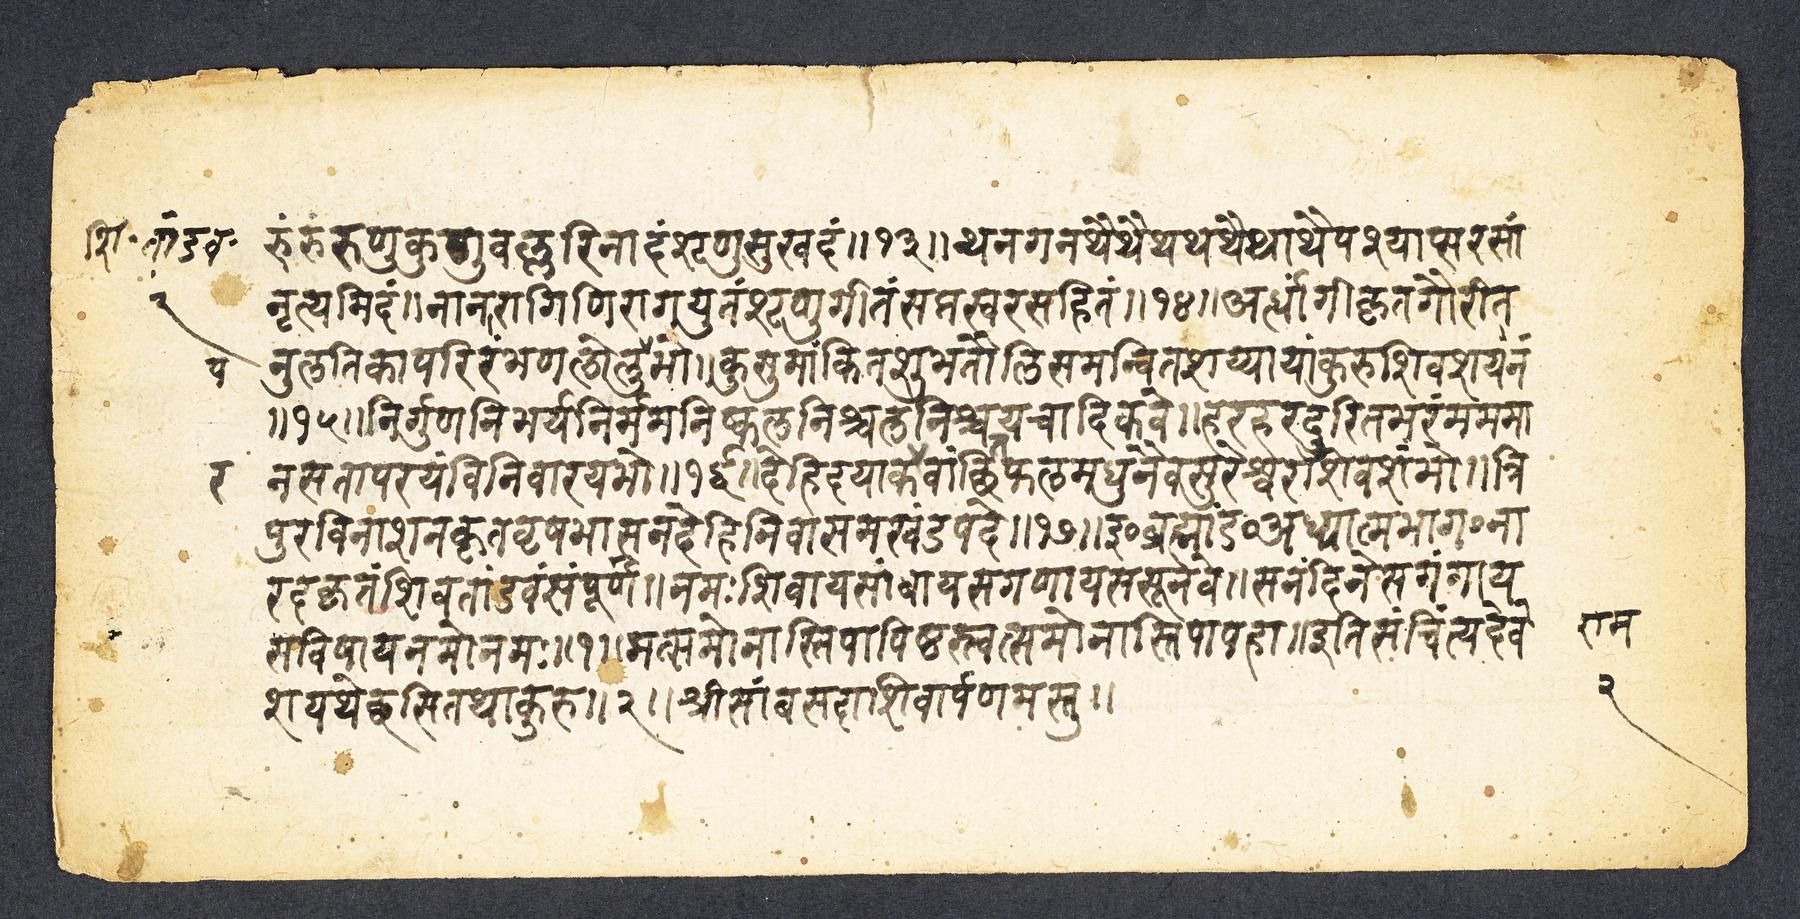 शि·तांडव·
रुंरुंरुणुकुणुवल्लरिनादंशृणुसुखदं॥१३॥थनगनथैथैथथथैथाथैपश्याप्सरसां
२
नृत्यमिदं॥नानरागिणिरागयुतंशृणुगीतंसप्तस्वरसहितं॥१४॥अर्धांगीकृतगौरीत
प
नुलतिकापरिरंभण
कुसुमांकित
समन्वितशय्यायांकुरुशिवशयनं
॥१५॥निर्गुणनिभर्यनिर्ममनिष्कलनिश्चलनिश्चय
हरहरदुरितभरंमममा
र
नसतापरयंविनिवारयभो॥१६॥देहिदया
फलमधुनैवसुरेश्वरशिवशंभो॥त्रि
पुरविनाशनकृतवृषभासनदेहिनिवासमखंडपदे॥१७॥इ०ब्रह्मांड०अध्यात्मभाग०ना
रदकृतंशिवतांडवंसंपूर्णं॥नमःशिवायसांबायसगणायससूनवे॥सनंदिनेसगंगाय
सविषायनमोनमः॥१॥मत्समोनास्तिपापिष्ठस्त्वत्समोनास्तिपापहा॥इतिसंचिंत्यदेवे
राम
शयथेछसितथाकुरु॥२॥श्रीसांबसदाशिवार्पणमस्तु॥
२